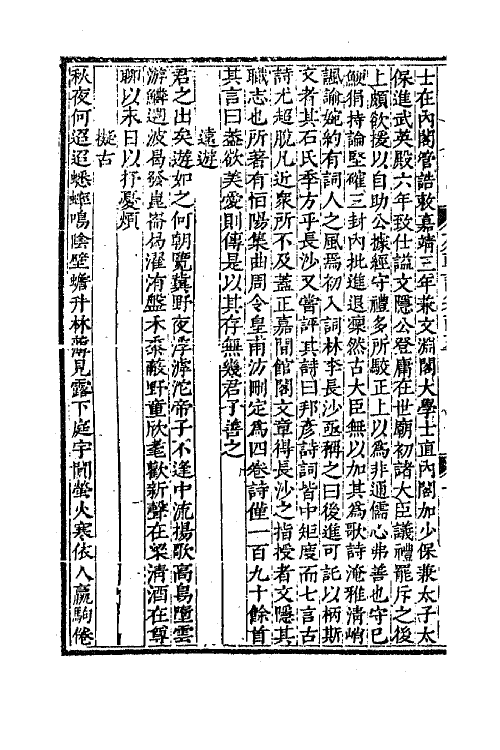 士在內閣管誥敕嘉靖三年兼文淵閣大學士直內閣加少保兼太子太
保進武英殿六年致仕諡文隱公登庸在世廟初諸大臣議禮罷斥之後
上頗欲援以自助公據經守禮多所駮正上以為非通儒心弗善也守己
鯁狷持論堅確三封內批進退藁然古大臣無以加其為歌詩淹雅清峭
諷諭婉約有詞人之風焉初入詞林李長沙亟稱之曰後進可託以柄斯
文者其石氏季方乎長沙又嘗評其詩曰邦彥詩詞皆中矩度而七言古
詩尤超脫凡近衆所不及蓋正嘉間館閣文章得長沙之指授者文隱其
職志也所著有恒陽集曲周令皇甫汸刪定為四卷詩僅一百九十餘首
其言曰蓋欲美愛則傳是以其存無幾君子善之
遠遊
君之出矣遊如之何朝覽冀野夜浮滹沱帝子不逢中流揚歌高鳥墮雲
游鱗迴波曷發崑崙曷濯洧盤禾黍蔽野童欣耄歡新聲在梁清酒在尊
聊以末日以抒憂煩
擬古
秋夜何迢迢蟋蟀鳴陰壁蟾升林薄見露下庭宇闃螢火寒依人羸駒倦